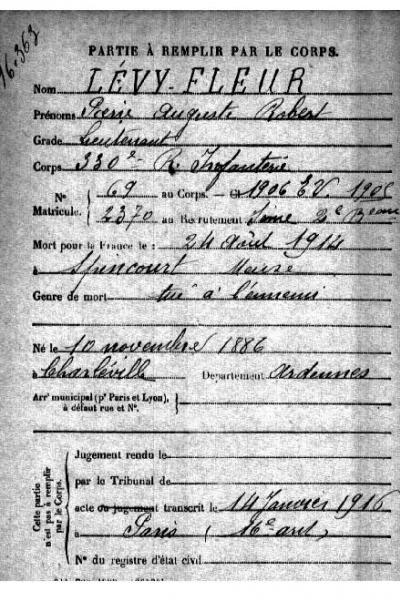 16.363
PARTIE À REMPLIR PAR LE CORPS.
Nom LÉVY-FLEUR
Prénoms Pierre Auguste Robert
Grade Lieutenant
Corps 330e R. Infanterie
N° 69 au Corps. — Cl 1906 E.V. 1905
Matricule. 2370 au Recrutement Seine 2e Bureau
Mort pour la France le : 24 Août 1914
à Spincourt Meuse
Genre de mort tué à l'ennemi
Né le 10 novembre 1886
à Charleville Département Ardennes
Arrt municipal (pr Paris et Lyon),
à défaut rue et N°.
Cette partie
n'est pas à remplir
par le Corps.
Jugement rendu le
par le Tribunal de
acte ou jugement transcrit le 14 Janvier 1916
à Paris (16e arrt)
N° du registre d'état civil